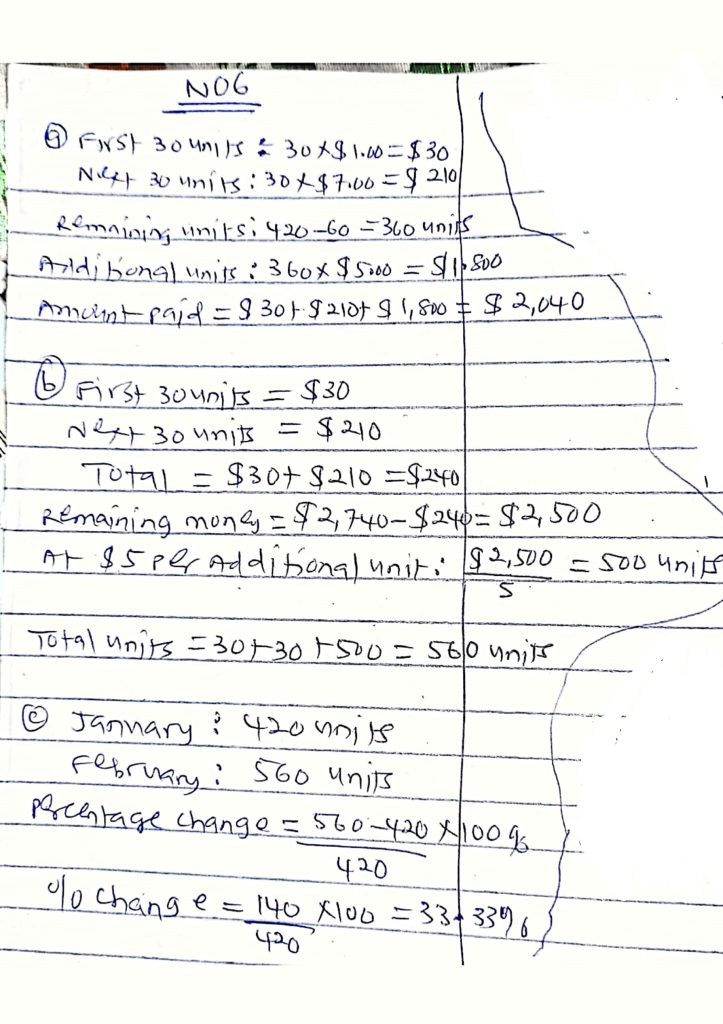 NO6
(a) First 30 units : 30 x $1.00 = $30
Next 30 units : 30 x $7.00 = $210
Remaining units : 420 - 60 = 360 units
Additional units : 360 x $5.00 = $1,800
Amount paid = $30 + $210 + $1,800 = $2,040
(b) First 30 units = $30
Next 30 units = $210
Total = $30 + $210 = $240
Remaining money = $2,740 - $240 = $2,500
At $5 per additional unit : $2,500/5 = 500 units
Total units = 30 + 30 + 500 = 560 units
(c) January : 420 units
February : 560 units
Percentage change = 560 - 420/420 x 100%
% change = 140/420 x 100 = 33.33%